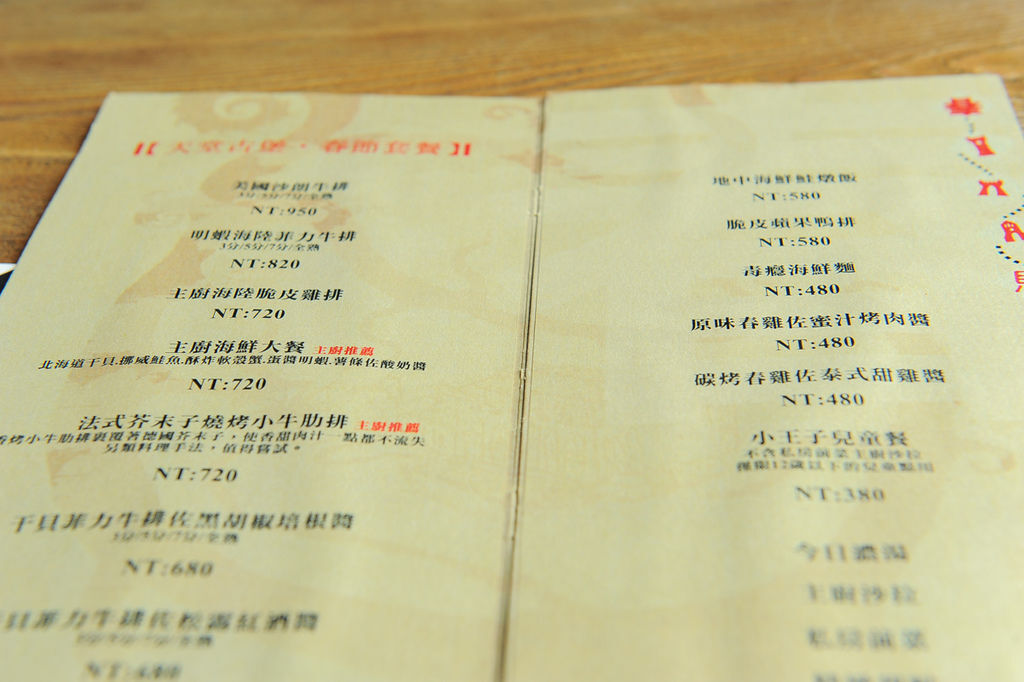 【天堂古堡·春節套餐】
美國沙朗牛排
3分/5分/7分/全熟
NT:950
明蝦海陸菲力牛排
3分/5分/7分/全熟
NT:820
主廚海陸脆皮雞排
NT:720
主廚海鮮大餐 主廚推薦
北海道干貝.挪威鮭魚.酥炸軟殼蟹.蛋醬明蝦.薯條佐酸奶醬
NT:720
法式芥末子燒烤小牛肋排 主廚推薦
香烤小牛肋排裹覆著德國芥末子，使香甜肉汁一點都不流失
另類料理手法，值得嘗試。
NT:720
干貝菲力牛排佐黑胡椒培根醬
3分/5分/7分/全熟
NT:680
貝菲力牛排佐松露紅酒醬
3分/5分/7分/全熟
NT:480
地中海鮮鮭燉飯
NT:580
脆皮蘋果鴨排
NT:580
毒癮海鮮麵
NT:480
原味春雞佐蜜汁烤肉醬
NT:480
碳烤春雞佐泰式甜雞醬
NT:480
小王子兒童餐
不含私房前菜主廚沙拉
僅限12歲以下的兒童點用
NT:380
今日濃湯
主廚沙拉
私房前菜